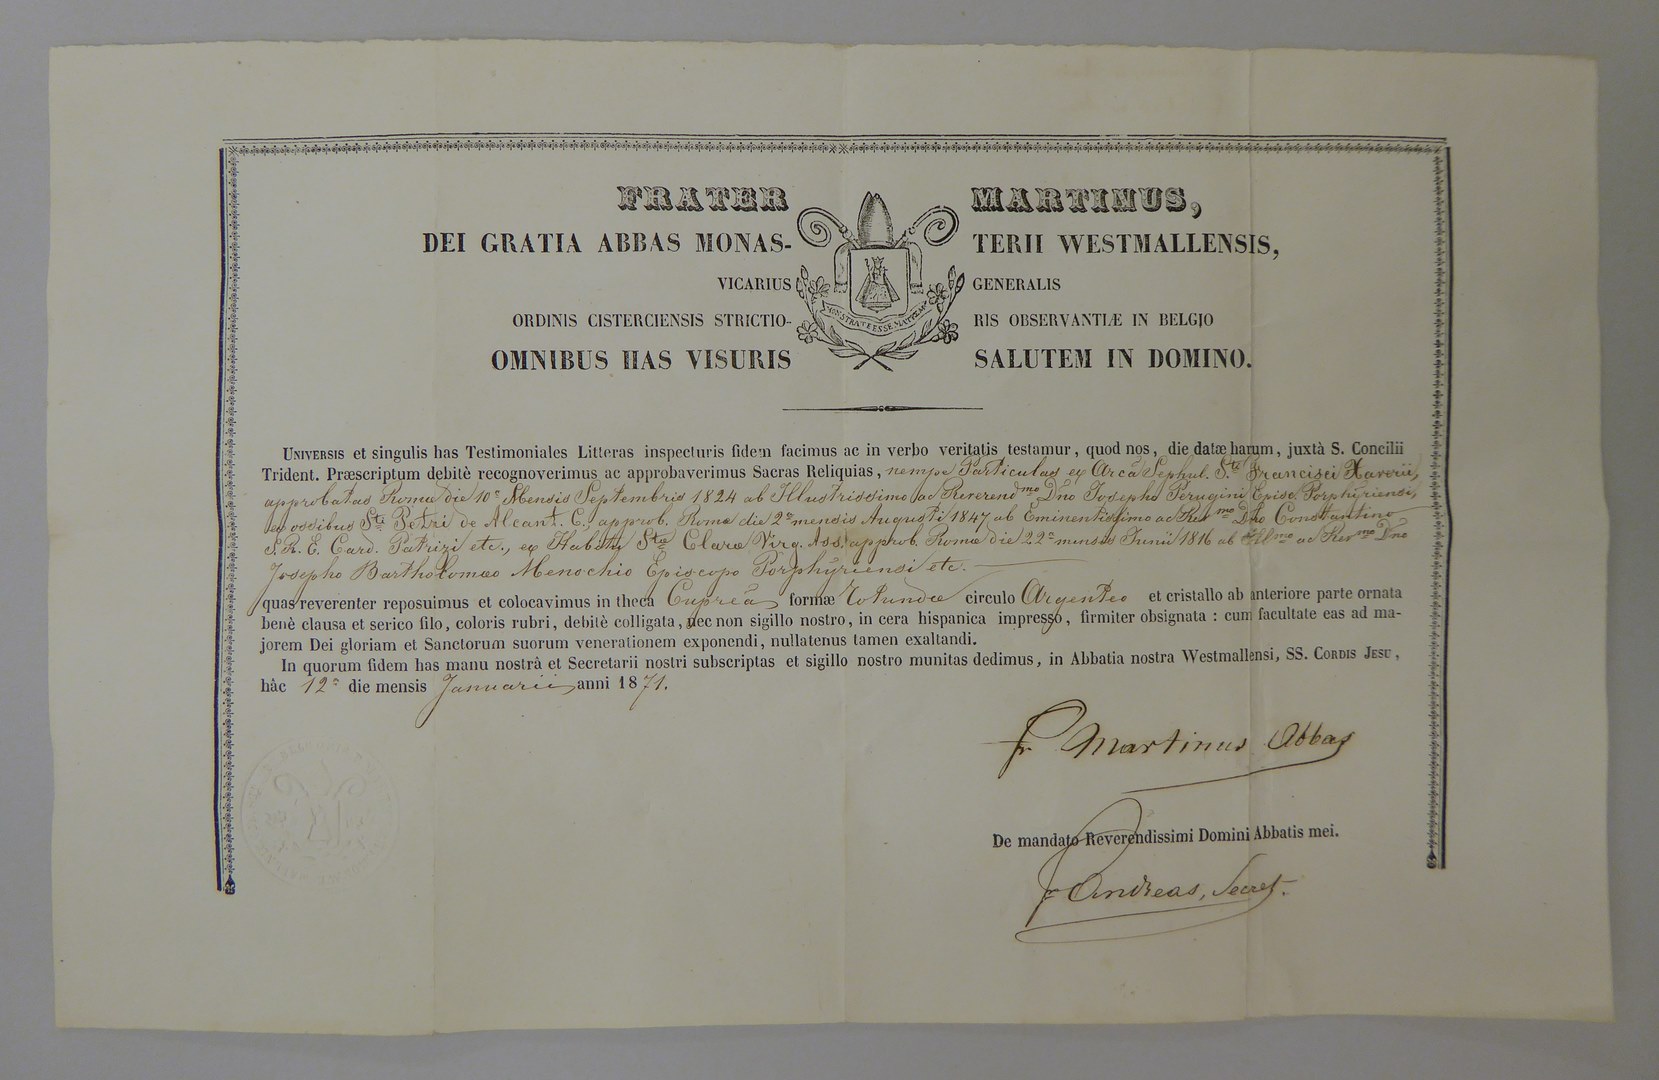 FRATER MARTINUS,
DEI GRATIA ABBAS MONAS- TERII WESTMALLENSIS,
VICARIUS GENERALIS
ORDINIS CISTERCIENSIS STRICTIO- RIS OBSERVANTIÆ IN BELGIO
MONSTRA TE ESSE MATREM
OMNIBUS HAS VISURIS SALUTEM IN DOMINO.
UNIVERSIS et singulis has Testimoniales Litteras inspecturis fidem facimus ac in verbo veritatis testamur, quod nos, die datæ harum, juxtà S. Concilii
Trident. Præscriptum debitè recognoverimus ac approbaverimus Sacras Reliquias, nempe Particulas ex Arcâ Sephul. Sti Francisci Xaverii,
approbatas Romæ die 10ª Mensis Septembris 1824 ab Illustrissimo ac Reverendmo Dno Josepho Perugini Episc. Porphyriensi,
ex ossibus Sti Petri de Alcant. C., approb. Romæ die 2ª mensis Augusti 1847 ab Eminentissimo ac Revmo Dno Constantino
S. R. E. Card. Patrizi etc., ex Habitu Stæ Claræ Virg. Ass. approb. Romæ die 22ª mensis Junii 1816 ab Illmo ac Revmo Dno
Josepho Bartholomæo Menochio Episcopo Porphyriensi etc.
quas reverenter reposuimus et colocavimus in theca Cupreâ formæ Rotundæ circulo Argenteo et cristallo ab anteriore parte ornata
benè clausa et serico filo, coloris rubri, debitè colligata, nec non sigillo nostro, in cera hispanica impresso, firmiter obsignata : cum facultate eas ad ma-
jorem Dei gloriam et Sanctorum suorum venerationem exponendi, nullatenus tamen exaltandi.
In quorum fidem has manu nostrâ et Secretarii nostri subscriptas et sigillo nostro munitas dedimus, in Abbatia nostra Westmallensi, SS. CORDIS JESU,
hâc 12ª die mensis Januarii anni 1871.
fr. Martinus Abbas
De mandato Reverendissimi Domini Abbatis mei.
fr Andreas, Secret.